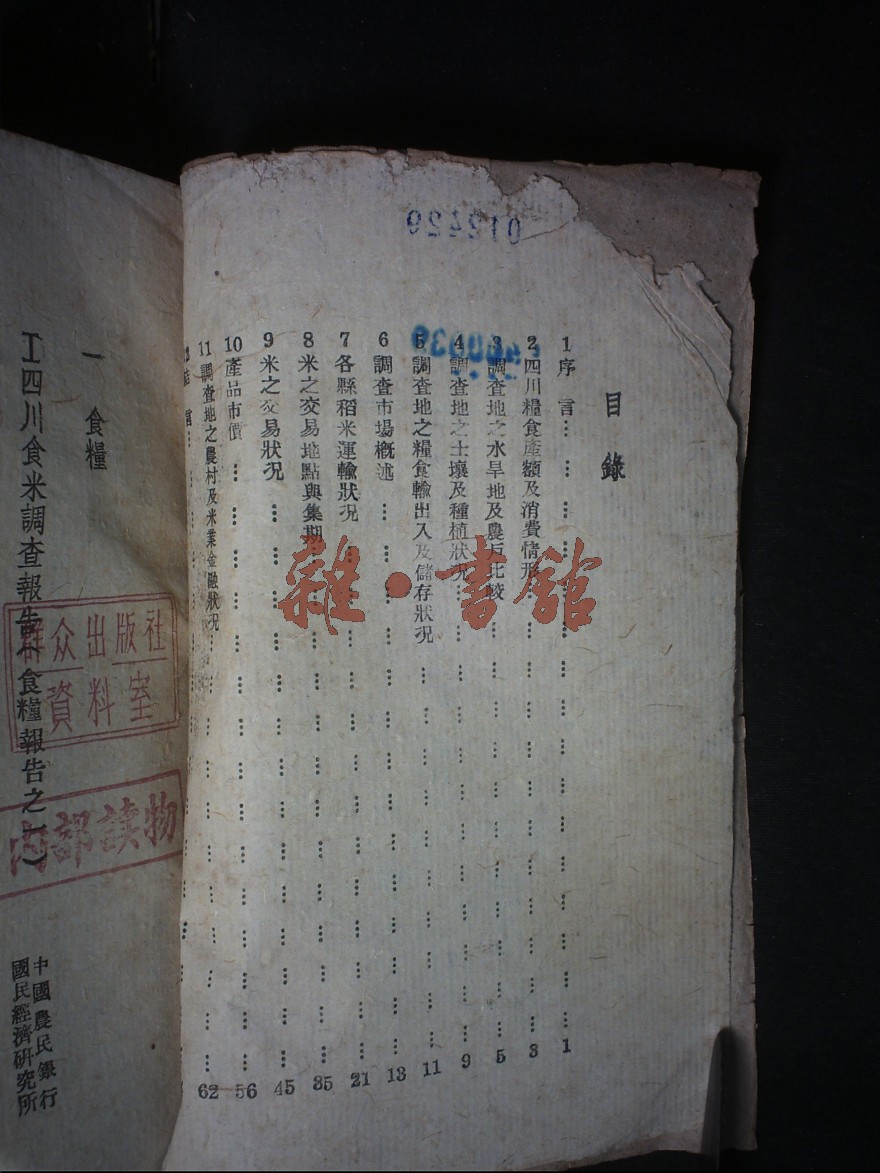 目錄
1 序言………………1
2 四川糧食產額及消費情形………………3
3 調查地之水旱地及農民比較………………5
4 調查地之土壤及種植狀況………………9
5 調查地之糧食輸出入及儲存狀況………………11
6 調查市場概述………………13
7 各縣稻米運輸狀況………………21
8 米之交易地點與集期………………35
9 米之交易狀況………………45
10 產品市價………………56
11 調查地之農村及米業金融狀況………………62
一 食糧
工四川食米調查報告
食糧報告之
中國農民銀行
國民經濟研究所
群众出版社
資料室
内部读物
012429
雜·書館